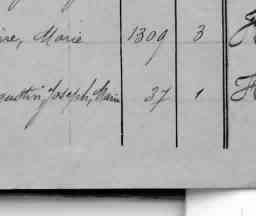 ire, Marie 1309 3
gustin Joseph, Marie 37 1